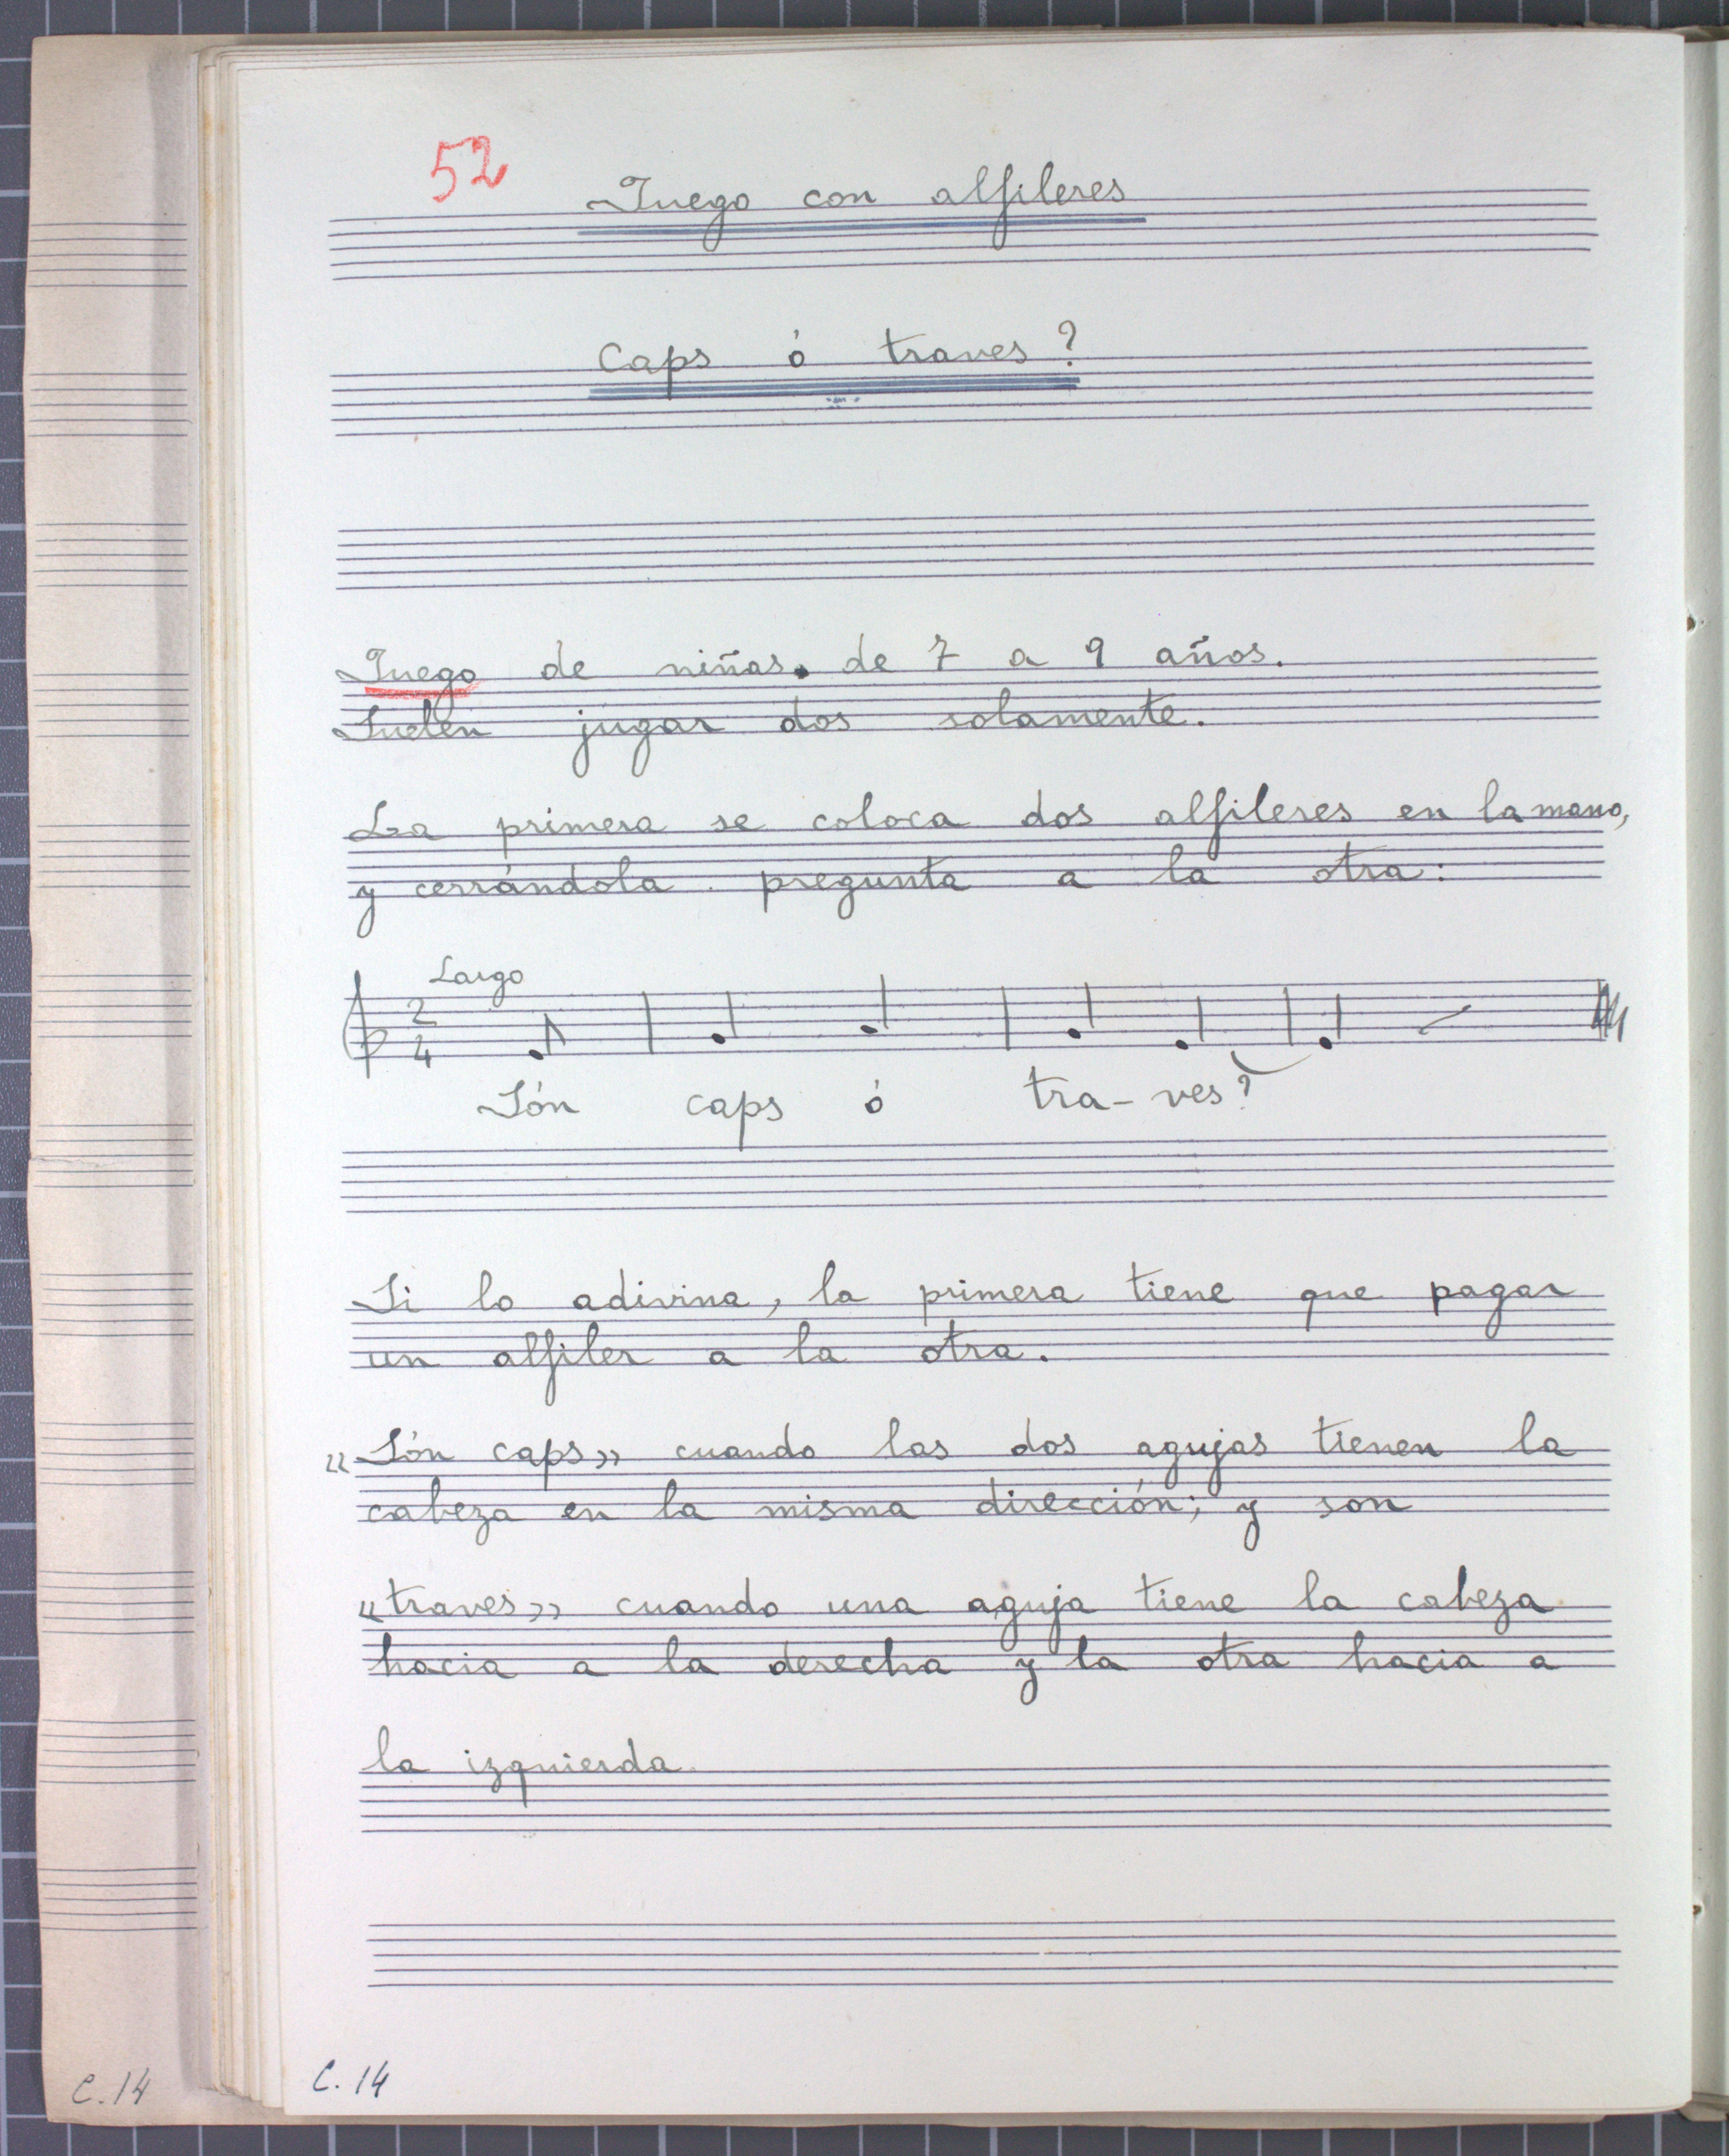 52
Juego con alfileres
Caps ó traves?
Juego de niñas. de 7 a 9 años.
Suelen jugar dos solamente.
La primera se coloca dos alfileres en la mano,
y cerrándola pregunta a la otra:
Largo
2
4
Són caps ó tra- ves?
Si lo adivina, la primera tiene que pagar
un alfiler a la otra.
«Són caps» cuando las dos agujas tienen la
cabeza en la misma dirección; y son
«traves» cuando una aguja tiene la cabeza
hacia a la derecha y la otra hacia a
la izquierda.
C. 14
C. 14